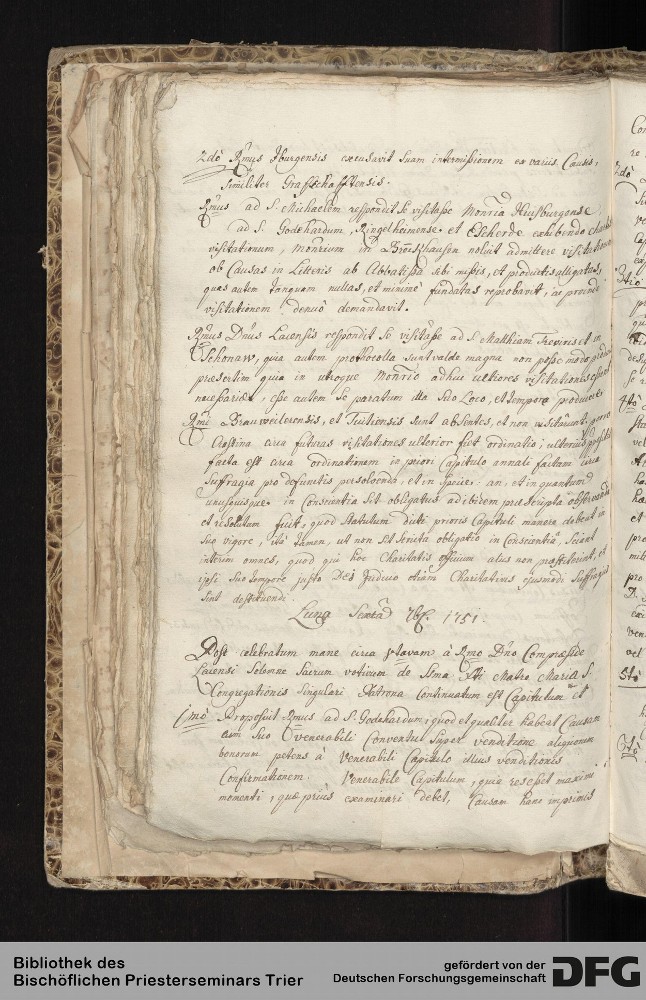 2dò Rmus Iburgensis excusavit suam intermissionem ex variis Causis,
Similiter Graffschafftensis.
Rmus ad S. Michaelem respondit se visitasse Monria Huisburgense,
ad S. Godehardum, Ringelheimense et Escherde exhibendo
visitationum, Monrium in Brocshausen noluit admittere visitationem
ob Causas in Litteris ab Abbatissa sibi missis, et productis allegatas,
quas autem tanquam nullas, et minime fundatas reprobavit, ac proinde
visitationem denuò demandavit.
Rmus Dnus Lacensis respondit se visitasse ad S. Matthiam Treviris et in
Schonaw, quia autem prothocolla sunt valde magna non posse
praesertim quia in utroque Monrio adhuc ulteriores visitationes
necessariae, esse autem se paratum illa suo Loco, et tempore producere.
Rmi Brauweilerensis, et Tuitiensis sunt absentes, et non visitârunt, porro
Crastina circa futuras visitationes ulterior fiet ordinatio; ulterius
facta est circa ordinationem in priori Capitulo annali factam circa
Suffragia pro defunctis persolvenda, et in specie: an, et in quantum
unusquisque in Conscientia sit obligatus ad ibidem praescripta observanda
et resolutum fuit, quod Statutum dicti prioris Capituli manere debeat in
suo vigore, ità tamen, ut non sit stricta obligatio in Conscientia, sciant
interim omnes, quod qui hoc Charitatis officium aliis non praestiterint, et
ipsi suo tempore justo Dei Judicio etiam Charitativis ejusmodi Suffragiis
sint destituendi.
Luna Sexta 7br. 1751.
Post celebratum mane circa 8tavam à Rmo Dno Compraeside
Lacensi solemne Sacrum votivum de Ssma Xti Matre Maria S.
Congregationis singulari Patrona continuatum est Capitulum et
1mò Proposuit Rmus ad S. Godehardum, quod et qualiter habeat Causam
cum suo Venerabili Conventu super venditione aliquorum
bonorum petens à Venerabili Capitulo illius venditionis
Confirmationem. Venerabile Capitulum, quia res esset maximi
momenti, quae prius examinari debet, Causam hanc imprimis
Bibliothek des
Bischöflichen Priesterseminars Trier
gefördert von der
Deutschen Forschungsgemeinschaft
DFG